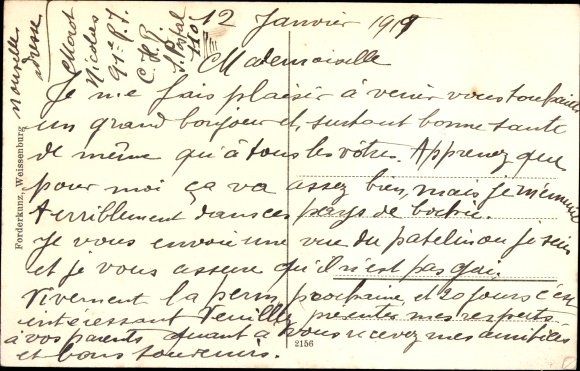 Nouvelle
adresse
Morot
Nicolas
91e R.I.
C.H.R.
S. Postal
110
12 Janvier 1919
Mademoiselle
Je me fais plaisir à venir vous souhaiter
un grand bonjour et surtout bonne santé
de même qu'à tous les vôtres. Apprenez que
pour moi ça va assez bien, mais je m'ennuie
terriblement dans ces pays de bochie.
Je vous envoie une vue du patelin ou je suis
et je vous assure qu'il n'est pas gai.
Vivement la perm prochaine, et 20 jours c'est
intéressant Veuillez présenter mes respects
à vos parents quant à vous recevez mes amitiés
et bons souvenirs.
Forderkunz, Weissenburg
2156